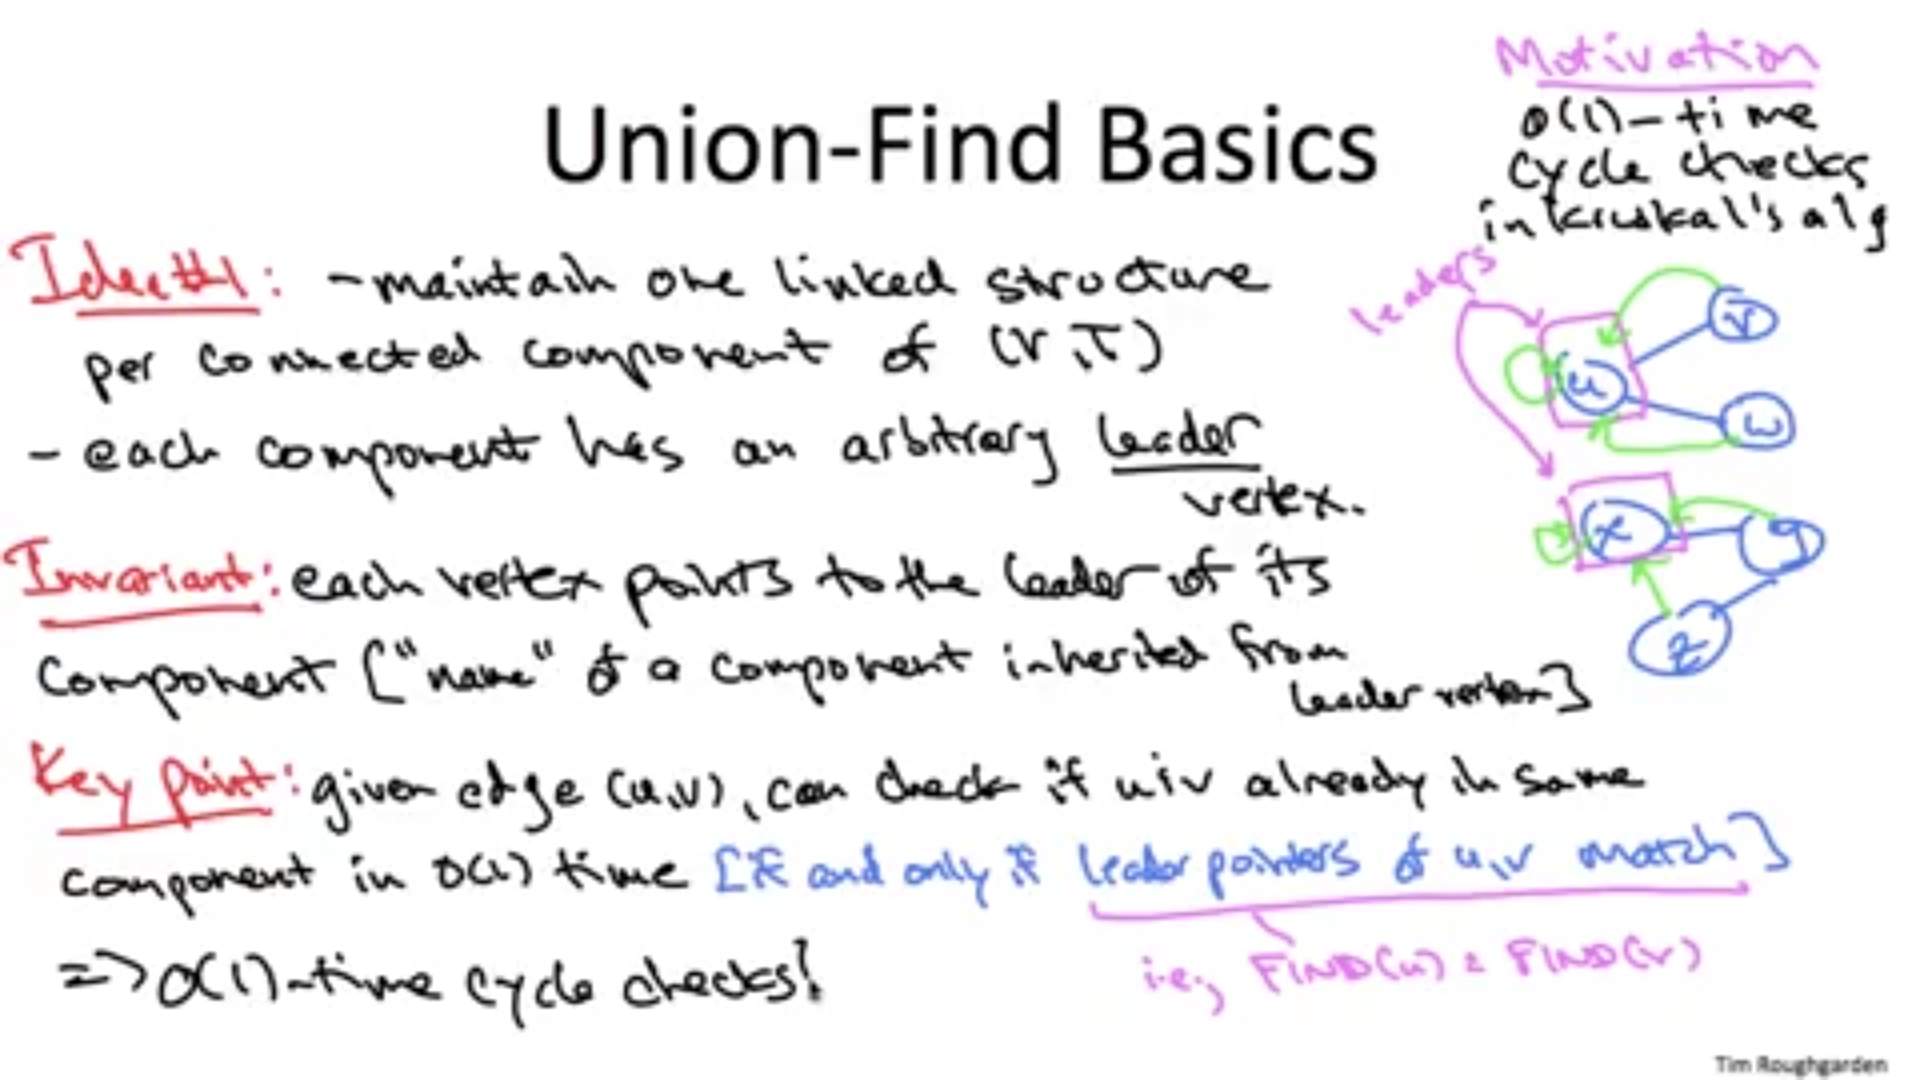 Motivation
O(1)-time
cycle checks
in Kruskal's alg
Union-Find Basics
Idea #1: - maintain one linked structure
per connected component of (V,T)
- each component has an arbitrary leader
vertex.
Invariant: each vertex points to the leader of its
component ["name" of a component inherited from
leader vertex]
Key point: given edge (u,v), can check if u,v already in same
component in O(1) time [if and only if leader pointers of u,v match]
i.e., FIND(u) = FIND(v)
=> O(1)-time cycle checks!
leaders
v
u
w
x
y
z
Tim Roughgarden